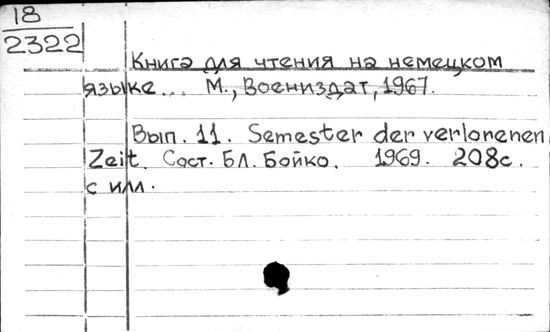 18
2322
Книга для чтения на немецком
языке... М., Воениздат, 1967.
Вып. 11. Semester der verlorenen
Zeit. Сост. Б Л. Бойко. 1969. 208с.
с илл.